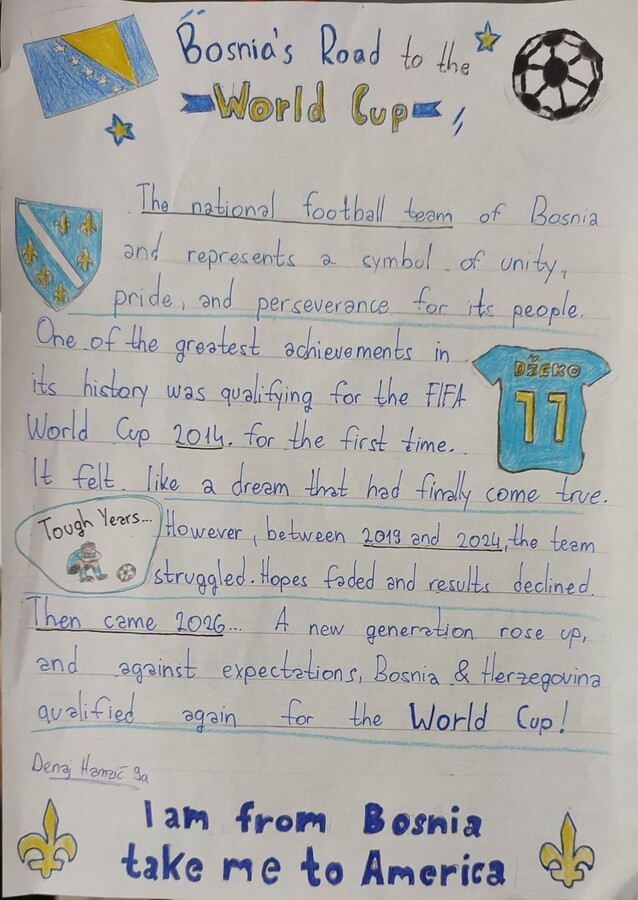 Bosnia's Road to the
World Cup
The national football team of Bosnia
and represents a symbol of unity,
pride, and perseverance for its people.
One of the greatest achievements in
its history was qualifying for the FIFA
World Cup 2014. for the first time.
It felt like a dream that had finally come true.
DŽEKO
11
Tough Years...
However, between 2019 and 2024, the team
struggled. Hopes faded and results declined.
Then came 2026... A new generation rose up,
and against expectations, Bosnia & Herzegovina
qualified again for the World Cup!
Denaj Hamzić 9a
I am from Bosnia
take me to America